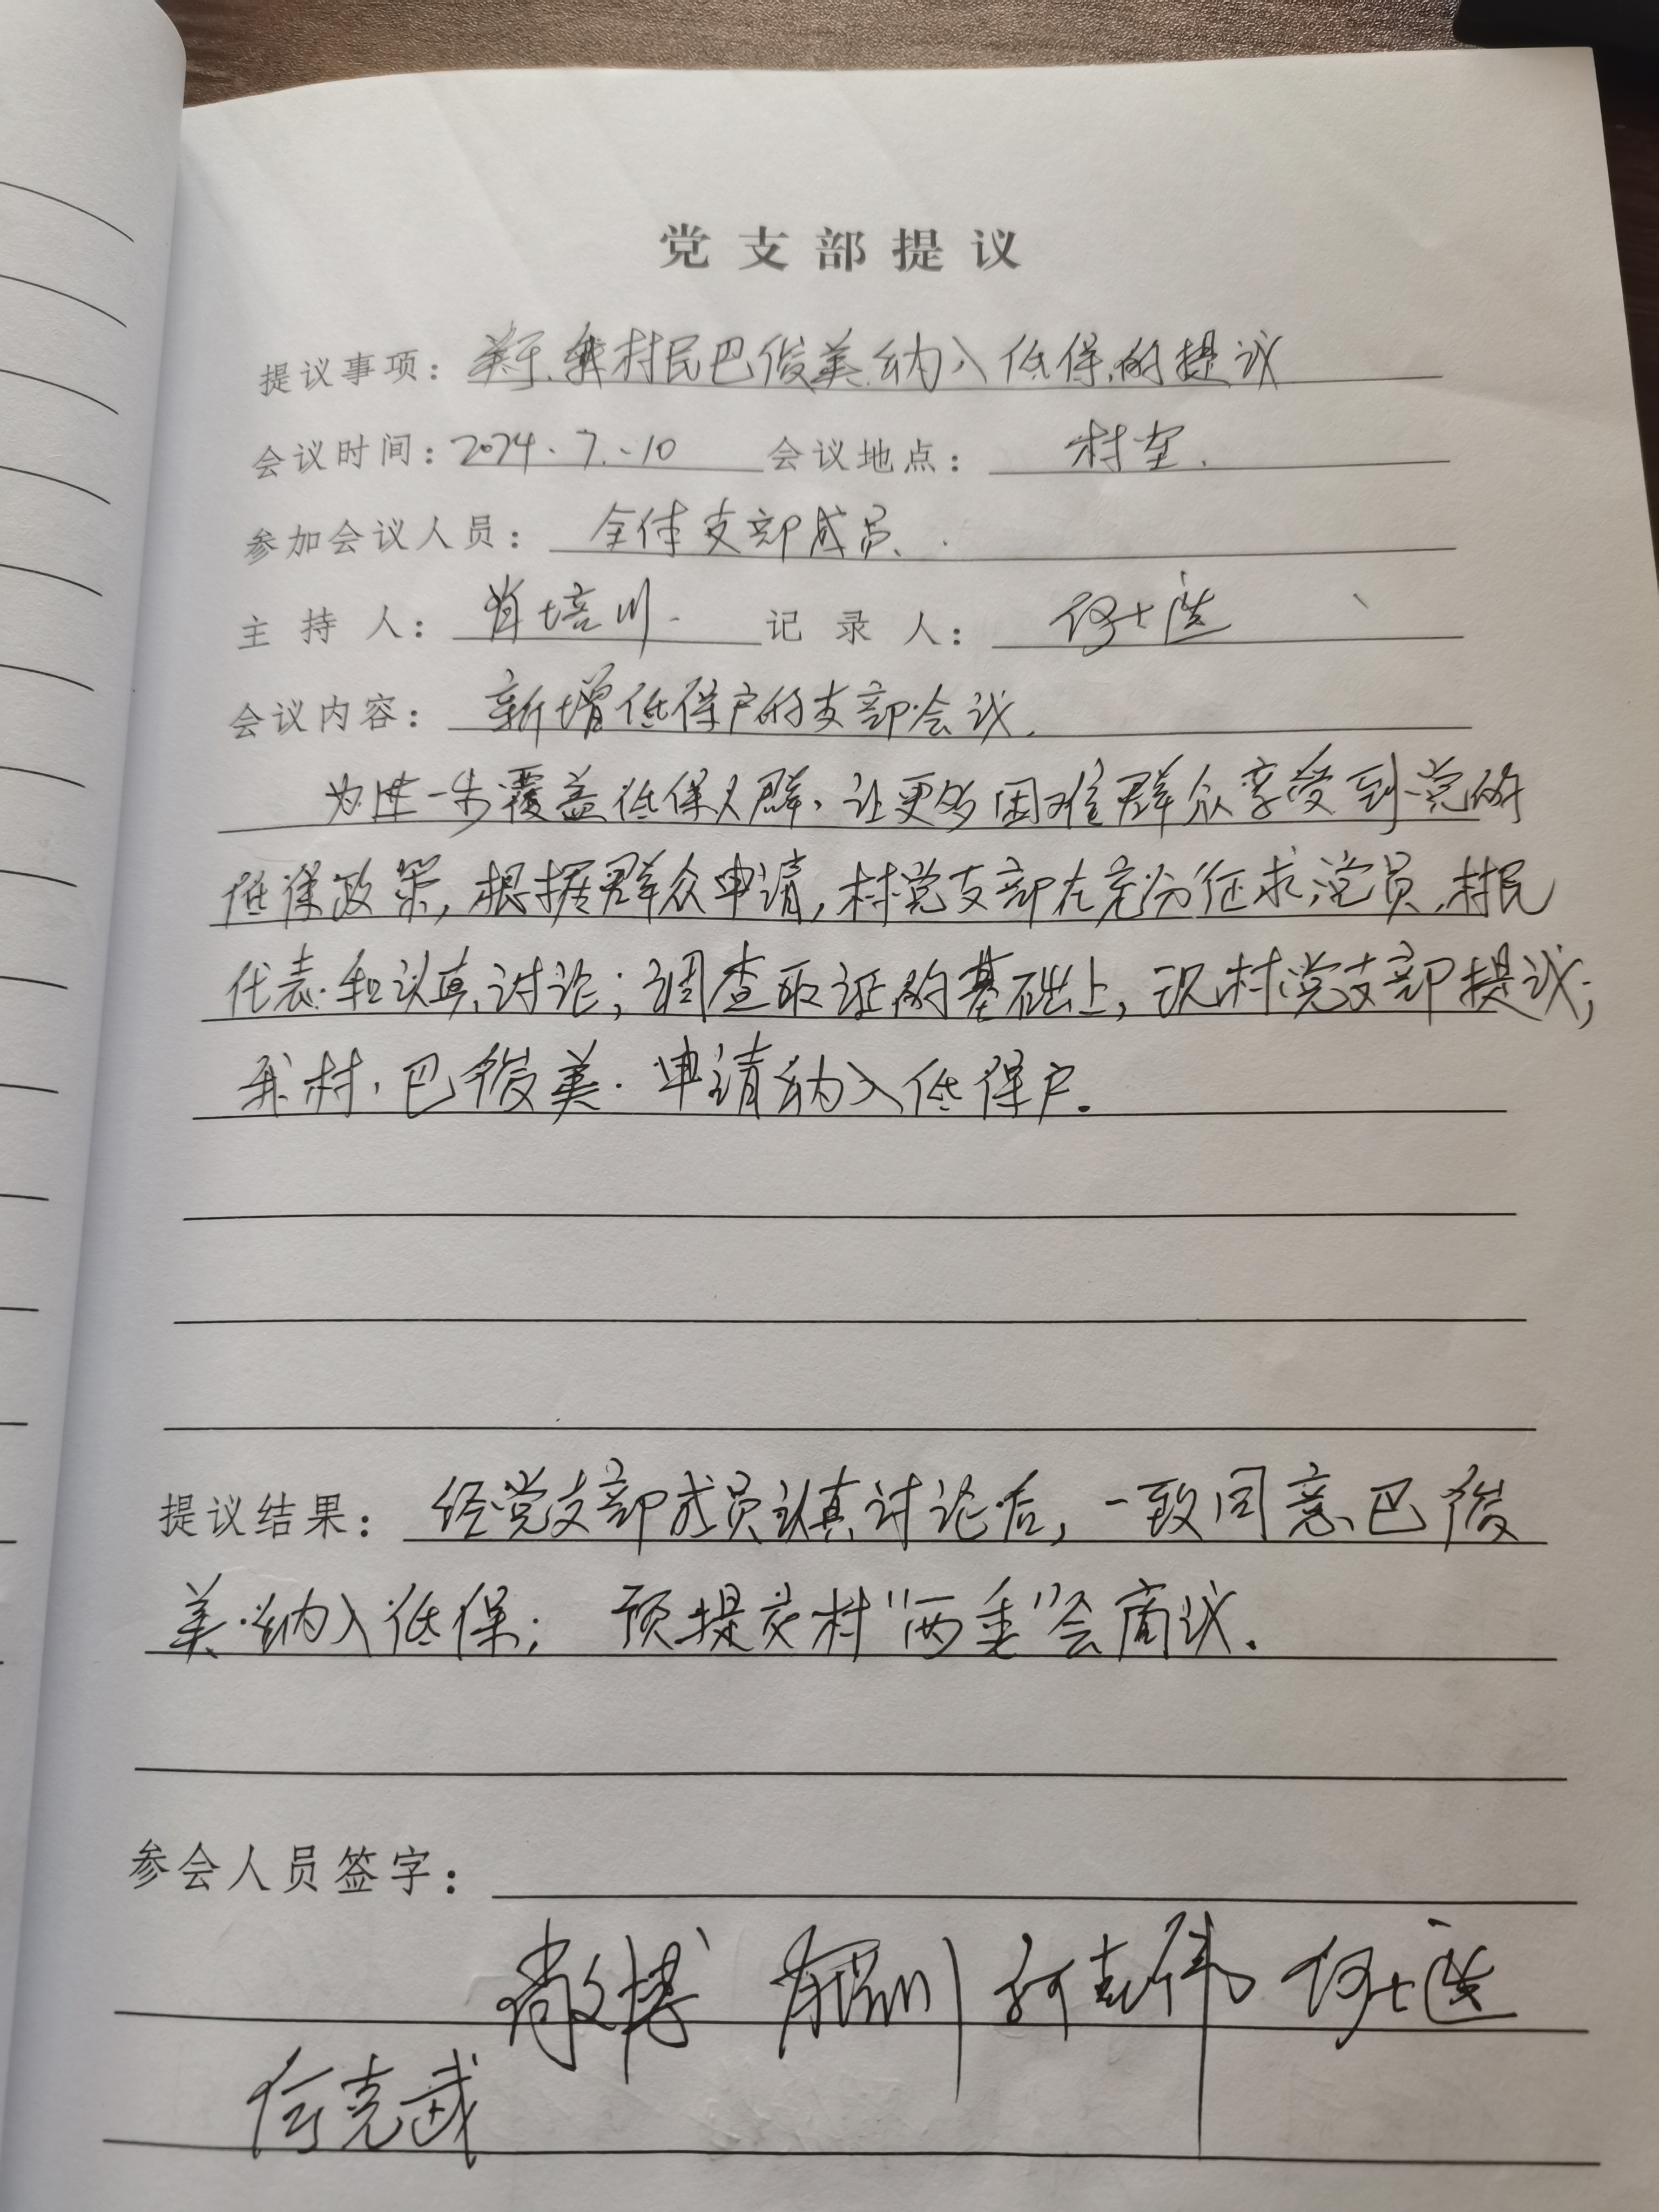 党支部提议
提议事项：关于我村民巴俊美纳入低保的提议
会议时间：2024.7.10 会议地点：村室.
参加会议人员：全体支部成员.
主持人：肖培川 记录人：何士选
会议内容：新增低保户的支部会议.
为进一步覆盖低保人群，让更多困难群众享受到党的
低保政策，根据群众申请，村党支部在充分征求党员.村民
代表.和认真讨论；调查取证的基础上，现村党支部提议；
我村，巴俊美.申请纳入低保户.
提议结果：经党支部成员认真讨论后，一致同意巴俊
美.纳入低保；预提交村"两委"会商议.
参会人员签字：
何士选
何克武